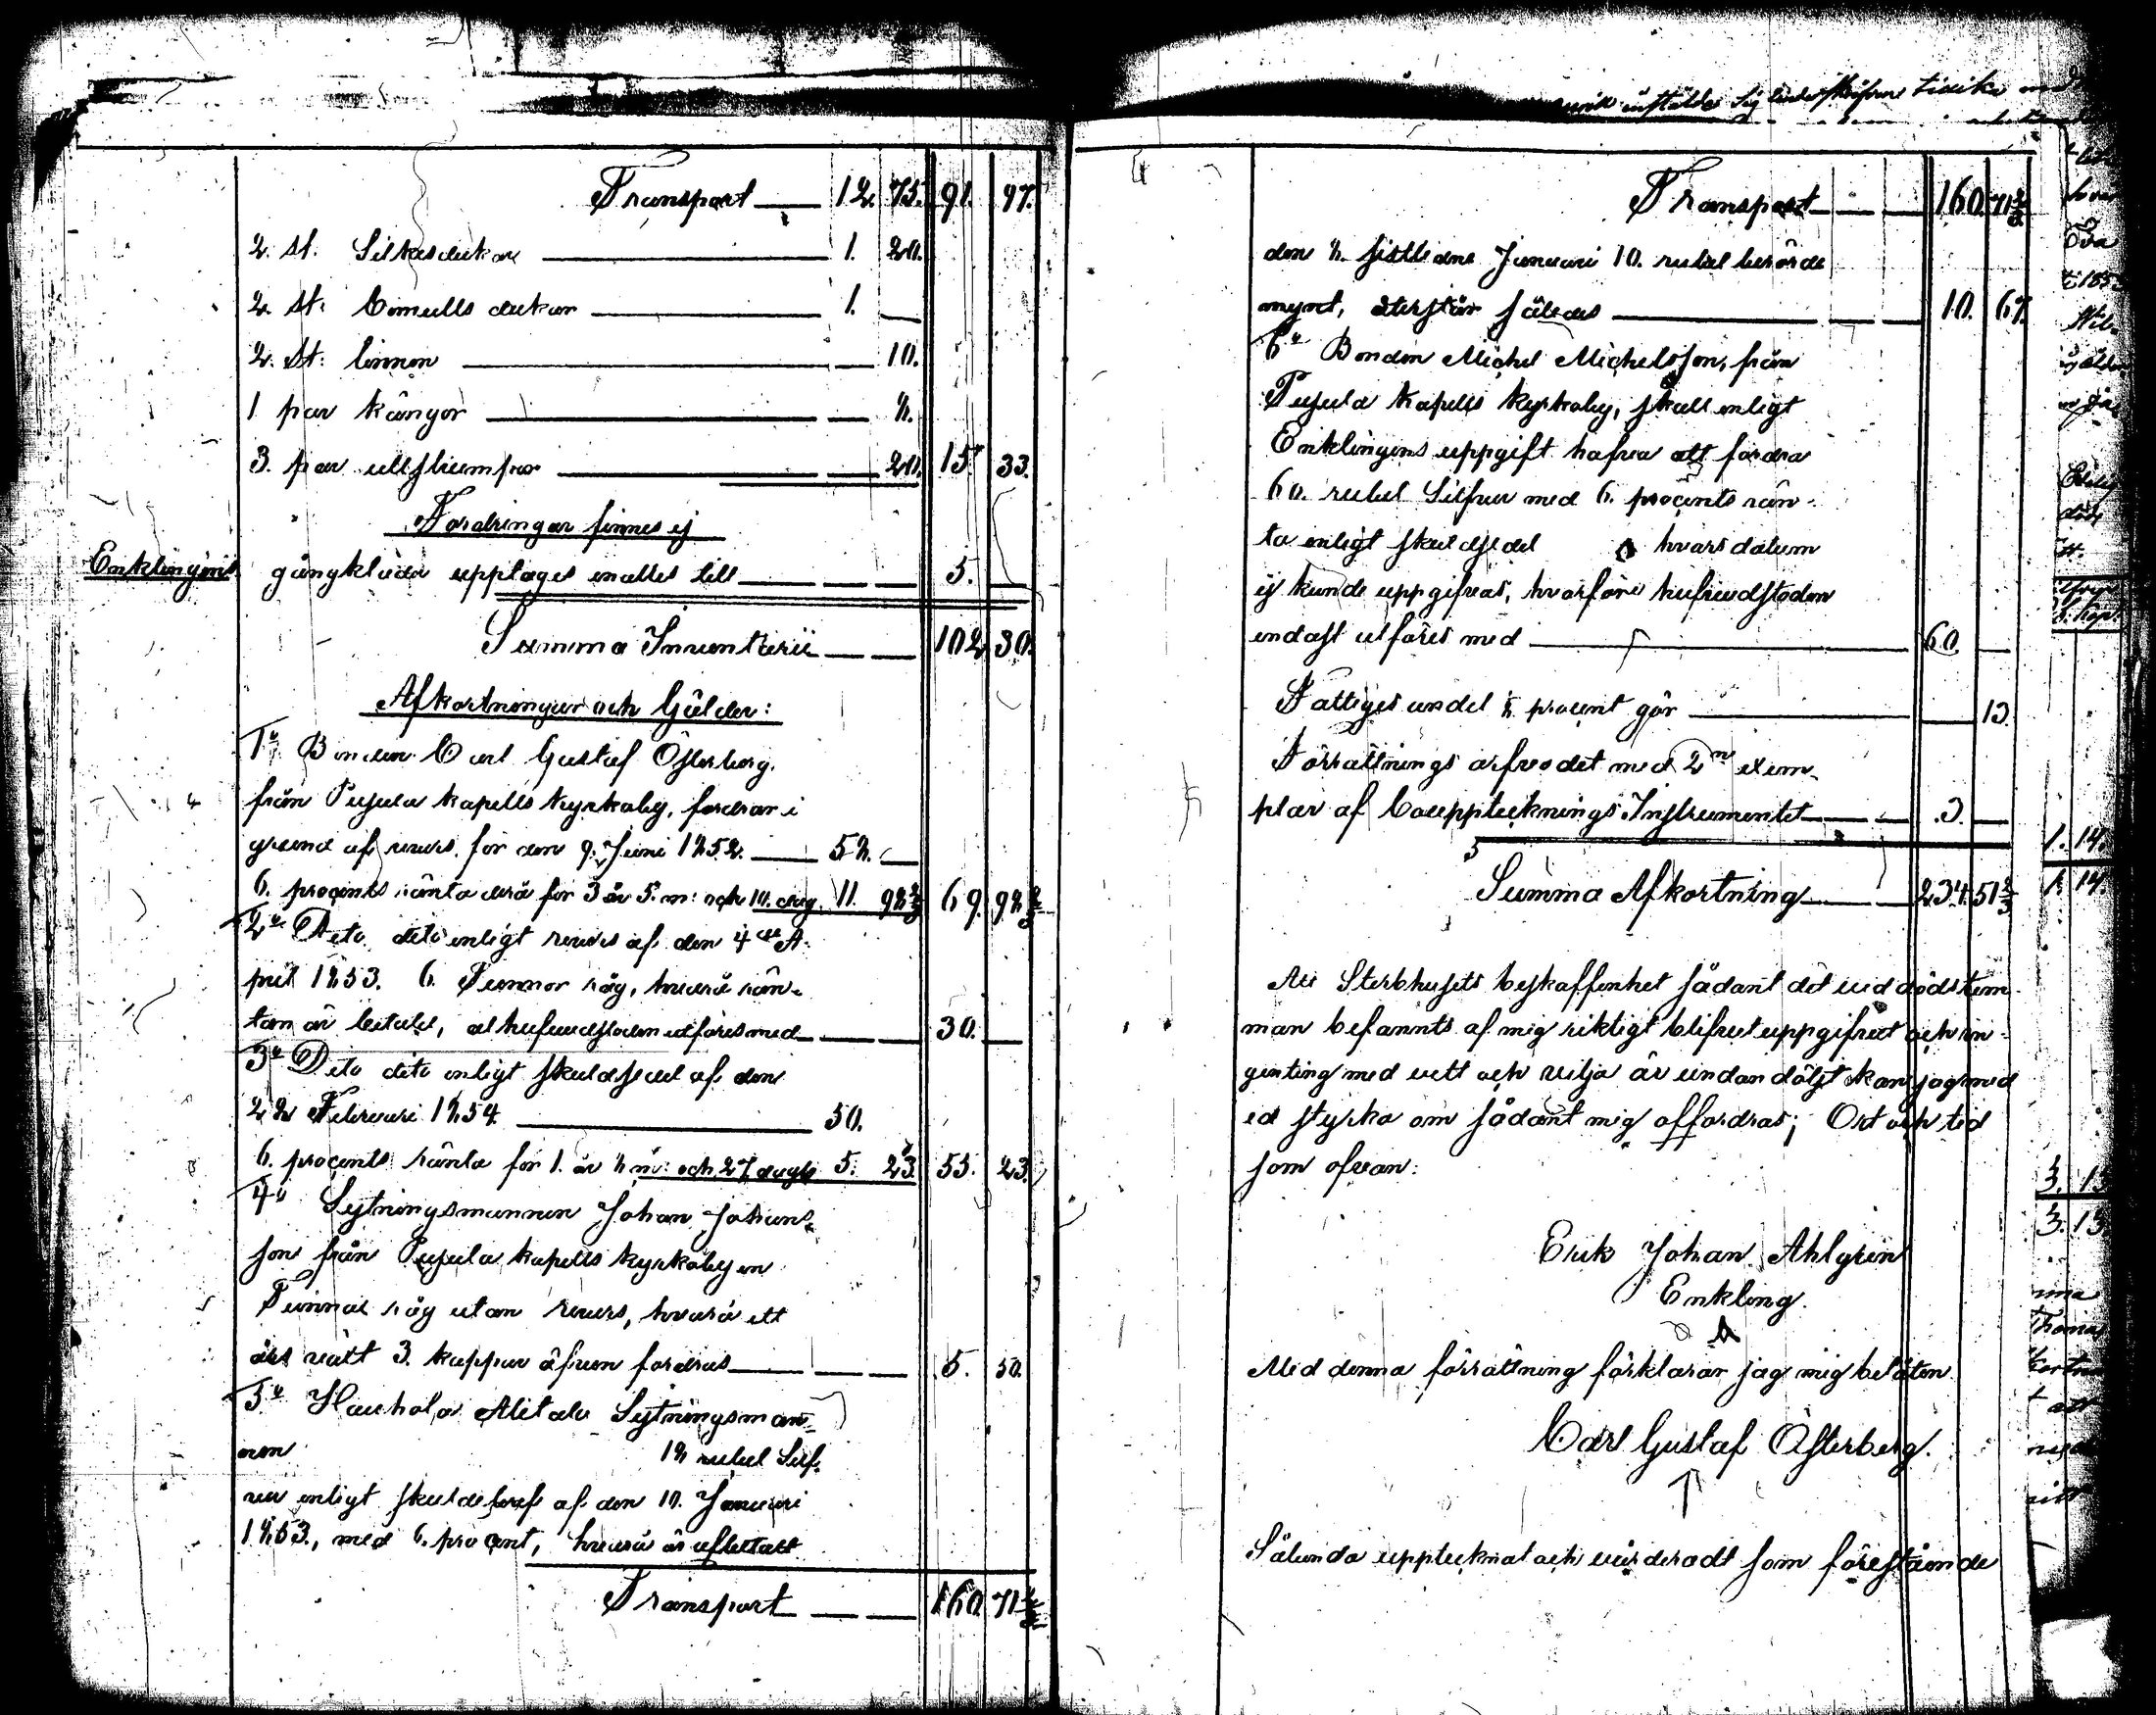 Transport 12. 75. 91. 97.
2. st. Silkesdukar 1. 20.
2. st: bomulls dukar 1. —
2. st: linnen — 10.
1 par kängor — 8.
3. par ullstrumpor — 20. 15. 33.
Fordringar finnes ej
Enklingens gångkläder upptages enallt till 5. —
Summa Inventarii 102 30.
Afkortningar och Gälder:
1o Bonden Carl Gustaf Österberg,
från Pusula kapells kyrkoby, fordrar i
grund af revers för den 9. Juni 1852. 58. —
6. procents ränta derå för 3 år 5. m: och 10. dag. 11. 98 2/3 69. 98 2/3
2o Dito dito enligt revers af den 4de A-
pril 1853. 6. Tunnor råg, hvarå rän-
tan är betald, at hufvudstolen utföres med 30. —
3o Dito dito enligt skuldsedel af den
28 Februari 1854. 50.
6. procents ränta för 1. år 8 m: och 27 dagar 5. 23 55. 23.
4o Sytningsmannen Johan Johans-
son från Pusula kapells kyrkoby en
Tunna råg utan revers, hvarå ett
års växt 3. kappar äfven fordras 5. 50.
5o Haukola Alitalo Sytningsman-
nen 18 rubel Silf-
ver enligt skuldebref af den 10. Januari
1853., med 6. procent, hvarå är afbetalt
Transport 160 71 2/3
Transport 160. 71 2/3
den 8. sistledne Januari 10. rubel berörde
mynt, återstår således 10. 67.
6o Bonden Michel Michelsson, från
Pusula kapells kyrkoby, skall enligt
Enklingens uppgift hafva att fordra
60. rubel Silfver med 6. procents rän-
ta enligt skuldsedel hvars datum
ej kunde uppgifvas, hvarföre hufvudstolen
endast utföres med 60. —
Fattiges andel 1/8 procent gör — 13.
Förrättnings arfvodet med 2ne exem-
plar af bouppteknings Instrumentet 3. —
Summa Afkortning 234. 51 2/3
All Sterbhusets beskaffenhet sådant det vid dödstim-
man befannts af mig riktigt blifvet uppgifvet och in-
genting med vett och vilja är undandöljt kan jag med
ed styrka om sådant mig affordras; Ort och tid
som ofvan:
Erik Johan Ahlgren
Enkling.
Med denna förrättning förklarar jag mig belåten
Carl Gustaf Österberg.
Sålunda upptecknat och värderadt som föreståemde